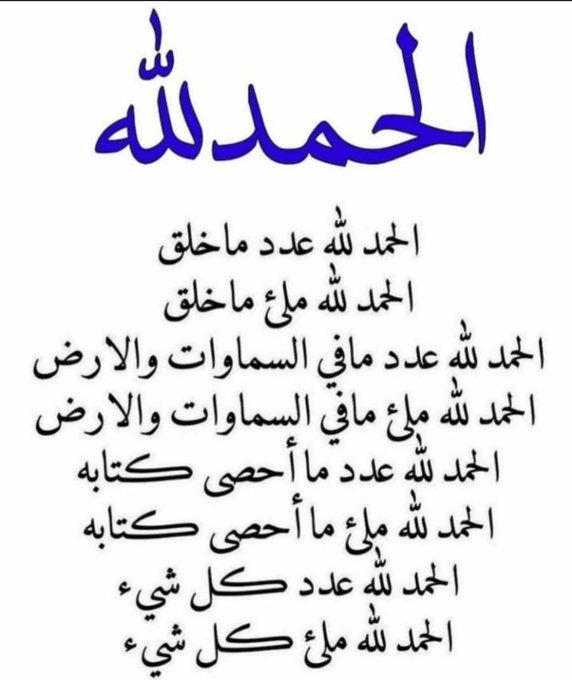 الحمدلله
الحمد لله عدد ماخلق
الحمد لله ملئ ماخلق
الحمد لله عدد مافي السماوات والارض
الحمد لله ملئ مافي السماوات والارض
الحمد لله عدد ما أحصى كتابه
الحمد لله ملئ ما أحصى كتابه
الحمد لله عدد كل شيء
الحمد لله ملئ كل شيء